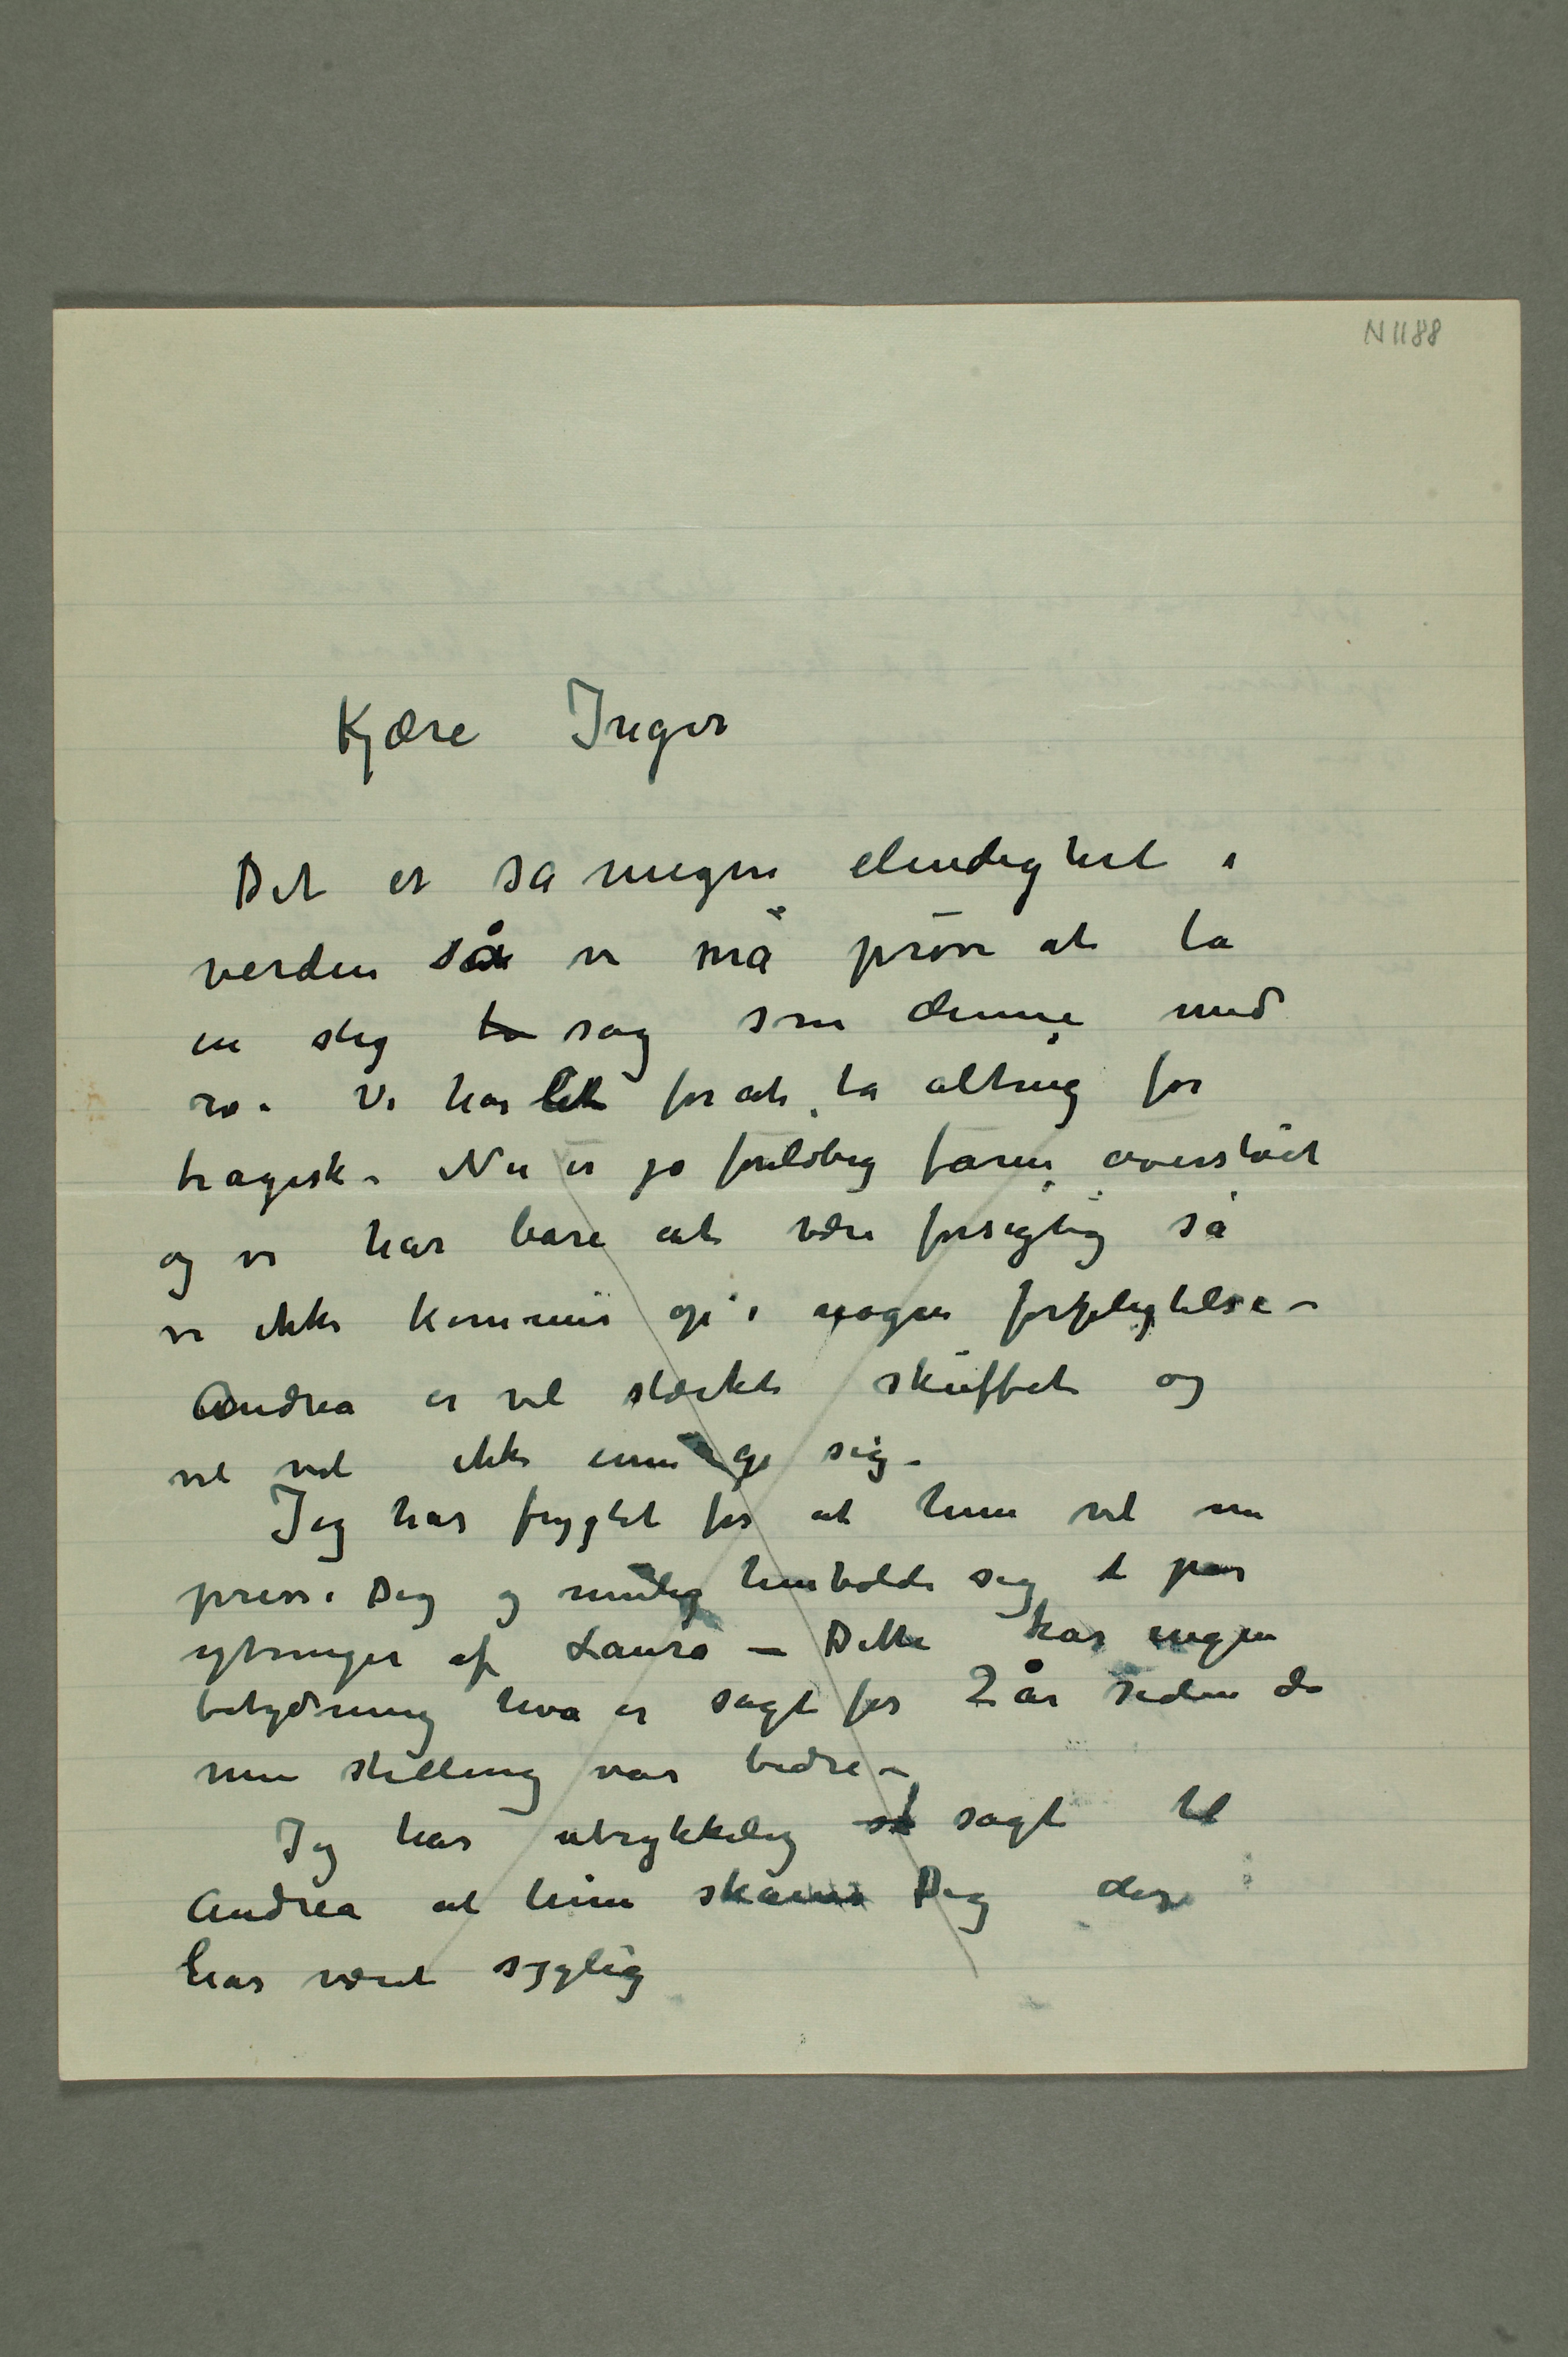 N 1188
Kjære Inger
Det er så megen elendighet i
verden så vi må prøve at ta
en slig ta sag som denne med
ro. Vi har let for at ta alting for
tragisk. Nu er jo foreløbig faren overstået
og vi har bare at være forsigtig så
vi ikke kommer op i nogen forpligtelse –
Andrea er vel stærkt skuffet og
vil vel ikke ennu gi sig –
Jeg har frygtet for at hun vil nu
presse Dig og mulig henholde sig t par
ytringer af Laura – Dette har ingen
betydning hva er sagt for 2 år siden da
min stilling var bedre –
Jeg har utrykkelig st sagt til
Andrea at hun skåner Dig der
har været sygelig